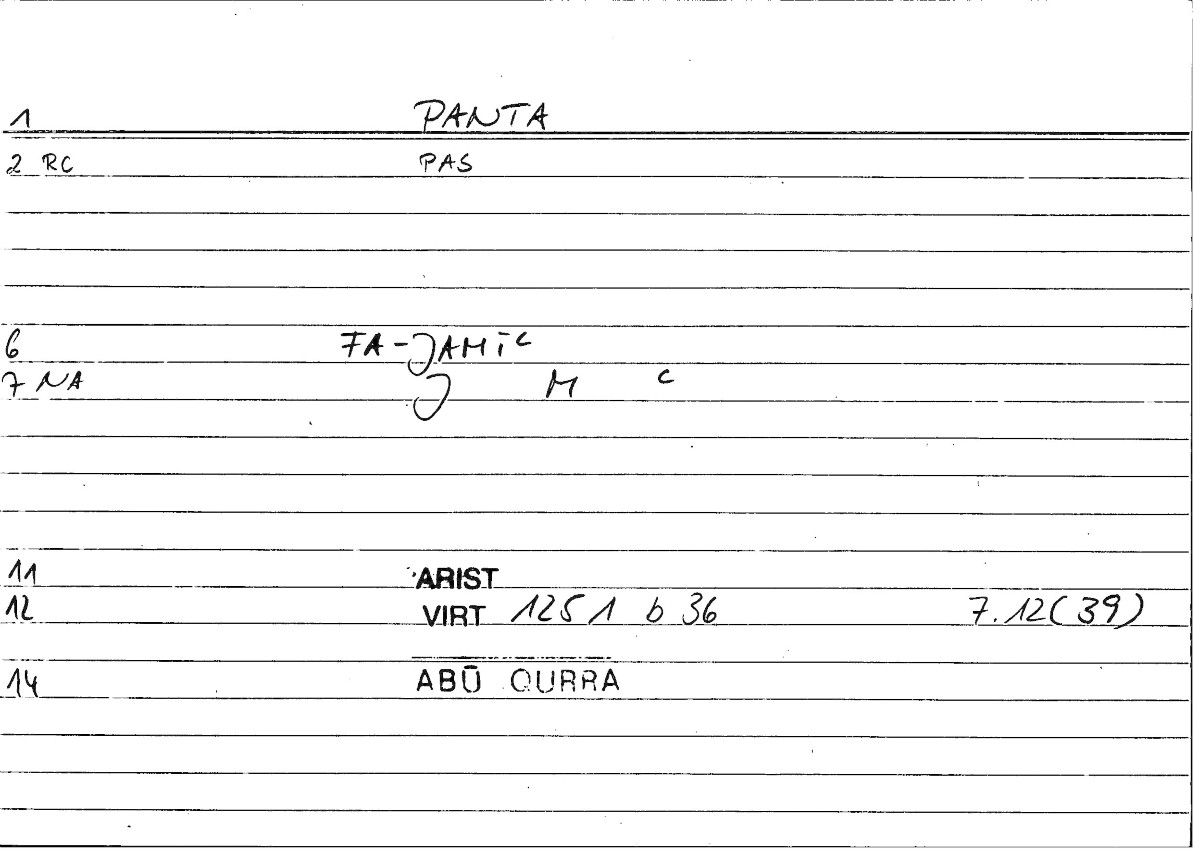 1 PANTA
2 RC PAS
6 FA-JAMIʿ
7 NA J M ʿ
11 ARIST
12 VIRT 1251 b 36 7.12(39)
14 ABŪ QURRA